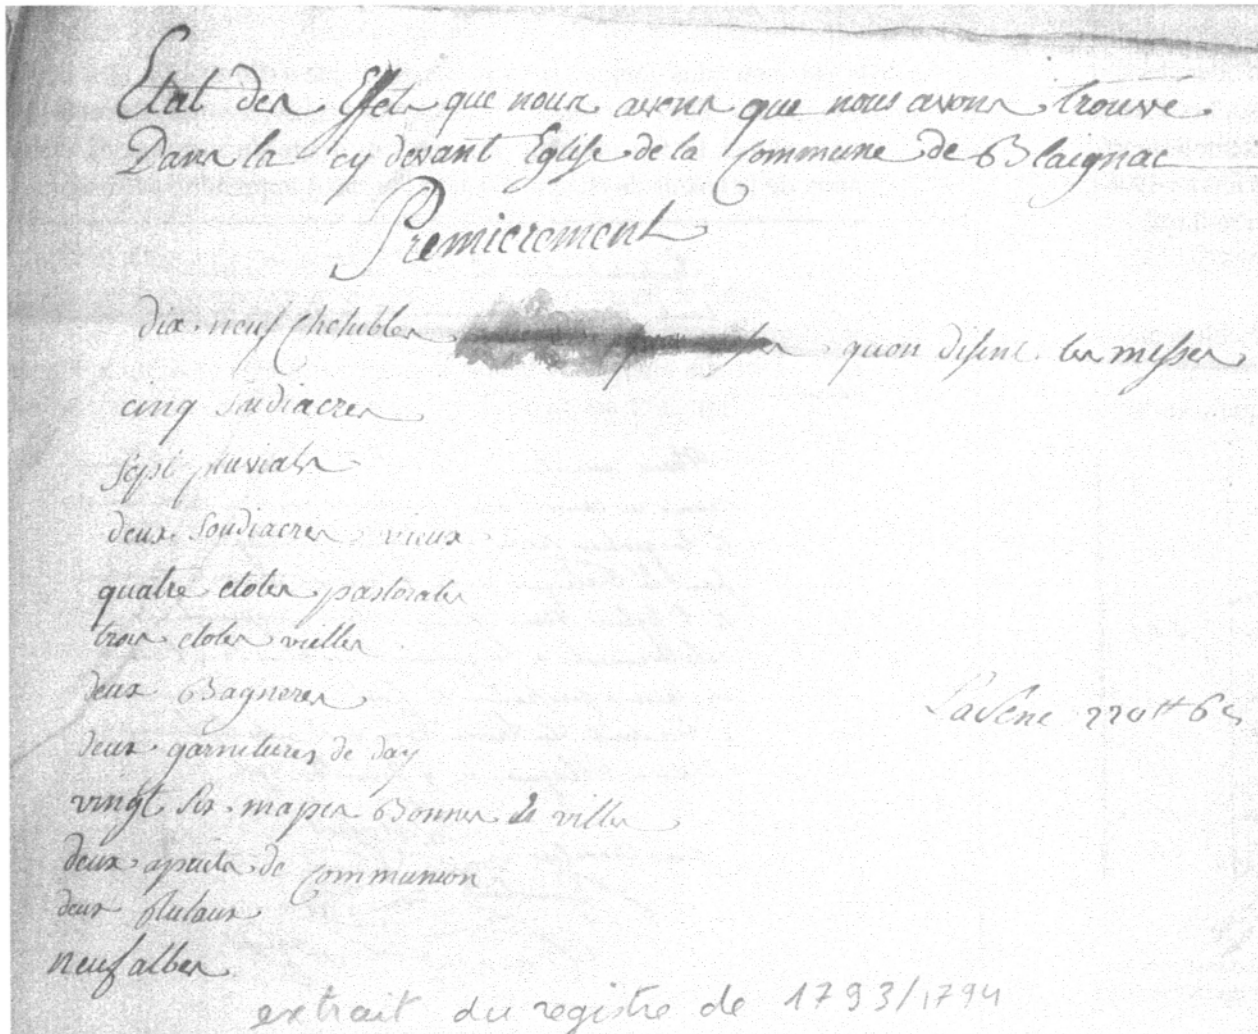 Etat des Effets que nous avons que nous avons trouvé
Dans la cy devant Eglise de la Commune de Blaignac
Premierement
dix neuf Chesubles quon disent les messes
cinq soudiacres
sept pluvials
deux soudiacres vieux
quatre etoles pastorales
trois etoles vielles
deux Bagneres
deux garnitures de day
vingt six mapes Bonnes et villes
deux apuits de Communion
deux
neuf albes
220 tt 6 s
extrait du registre de 1793/1794